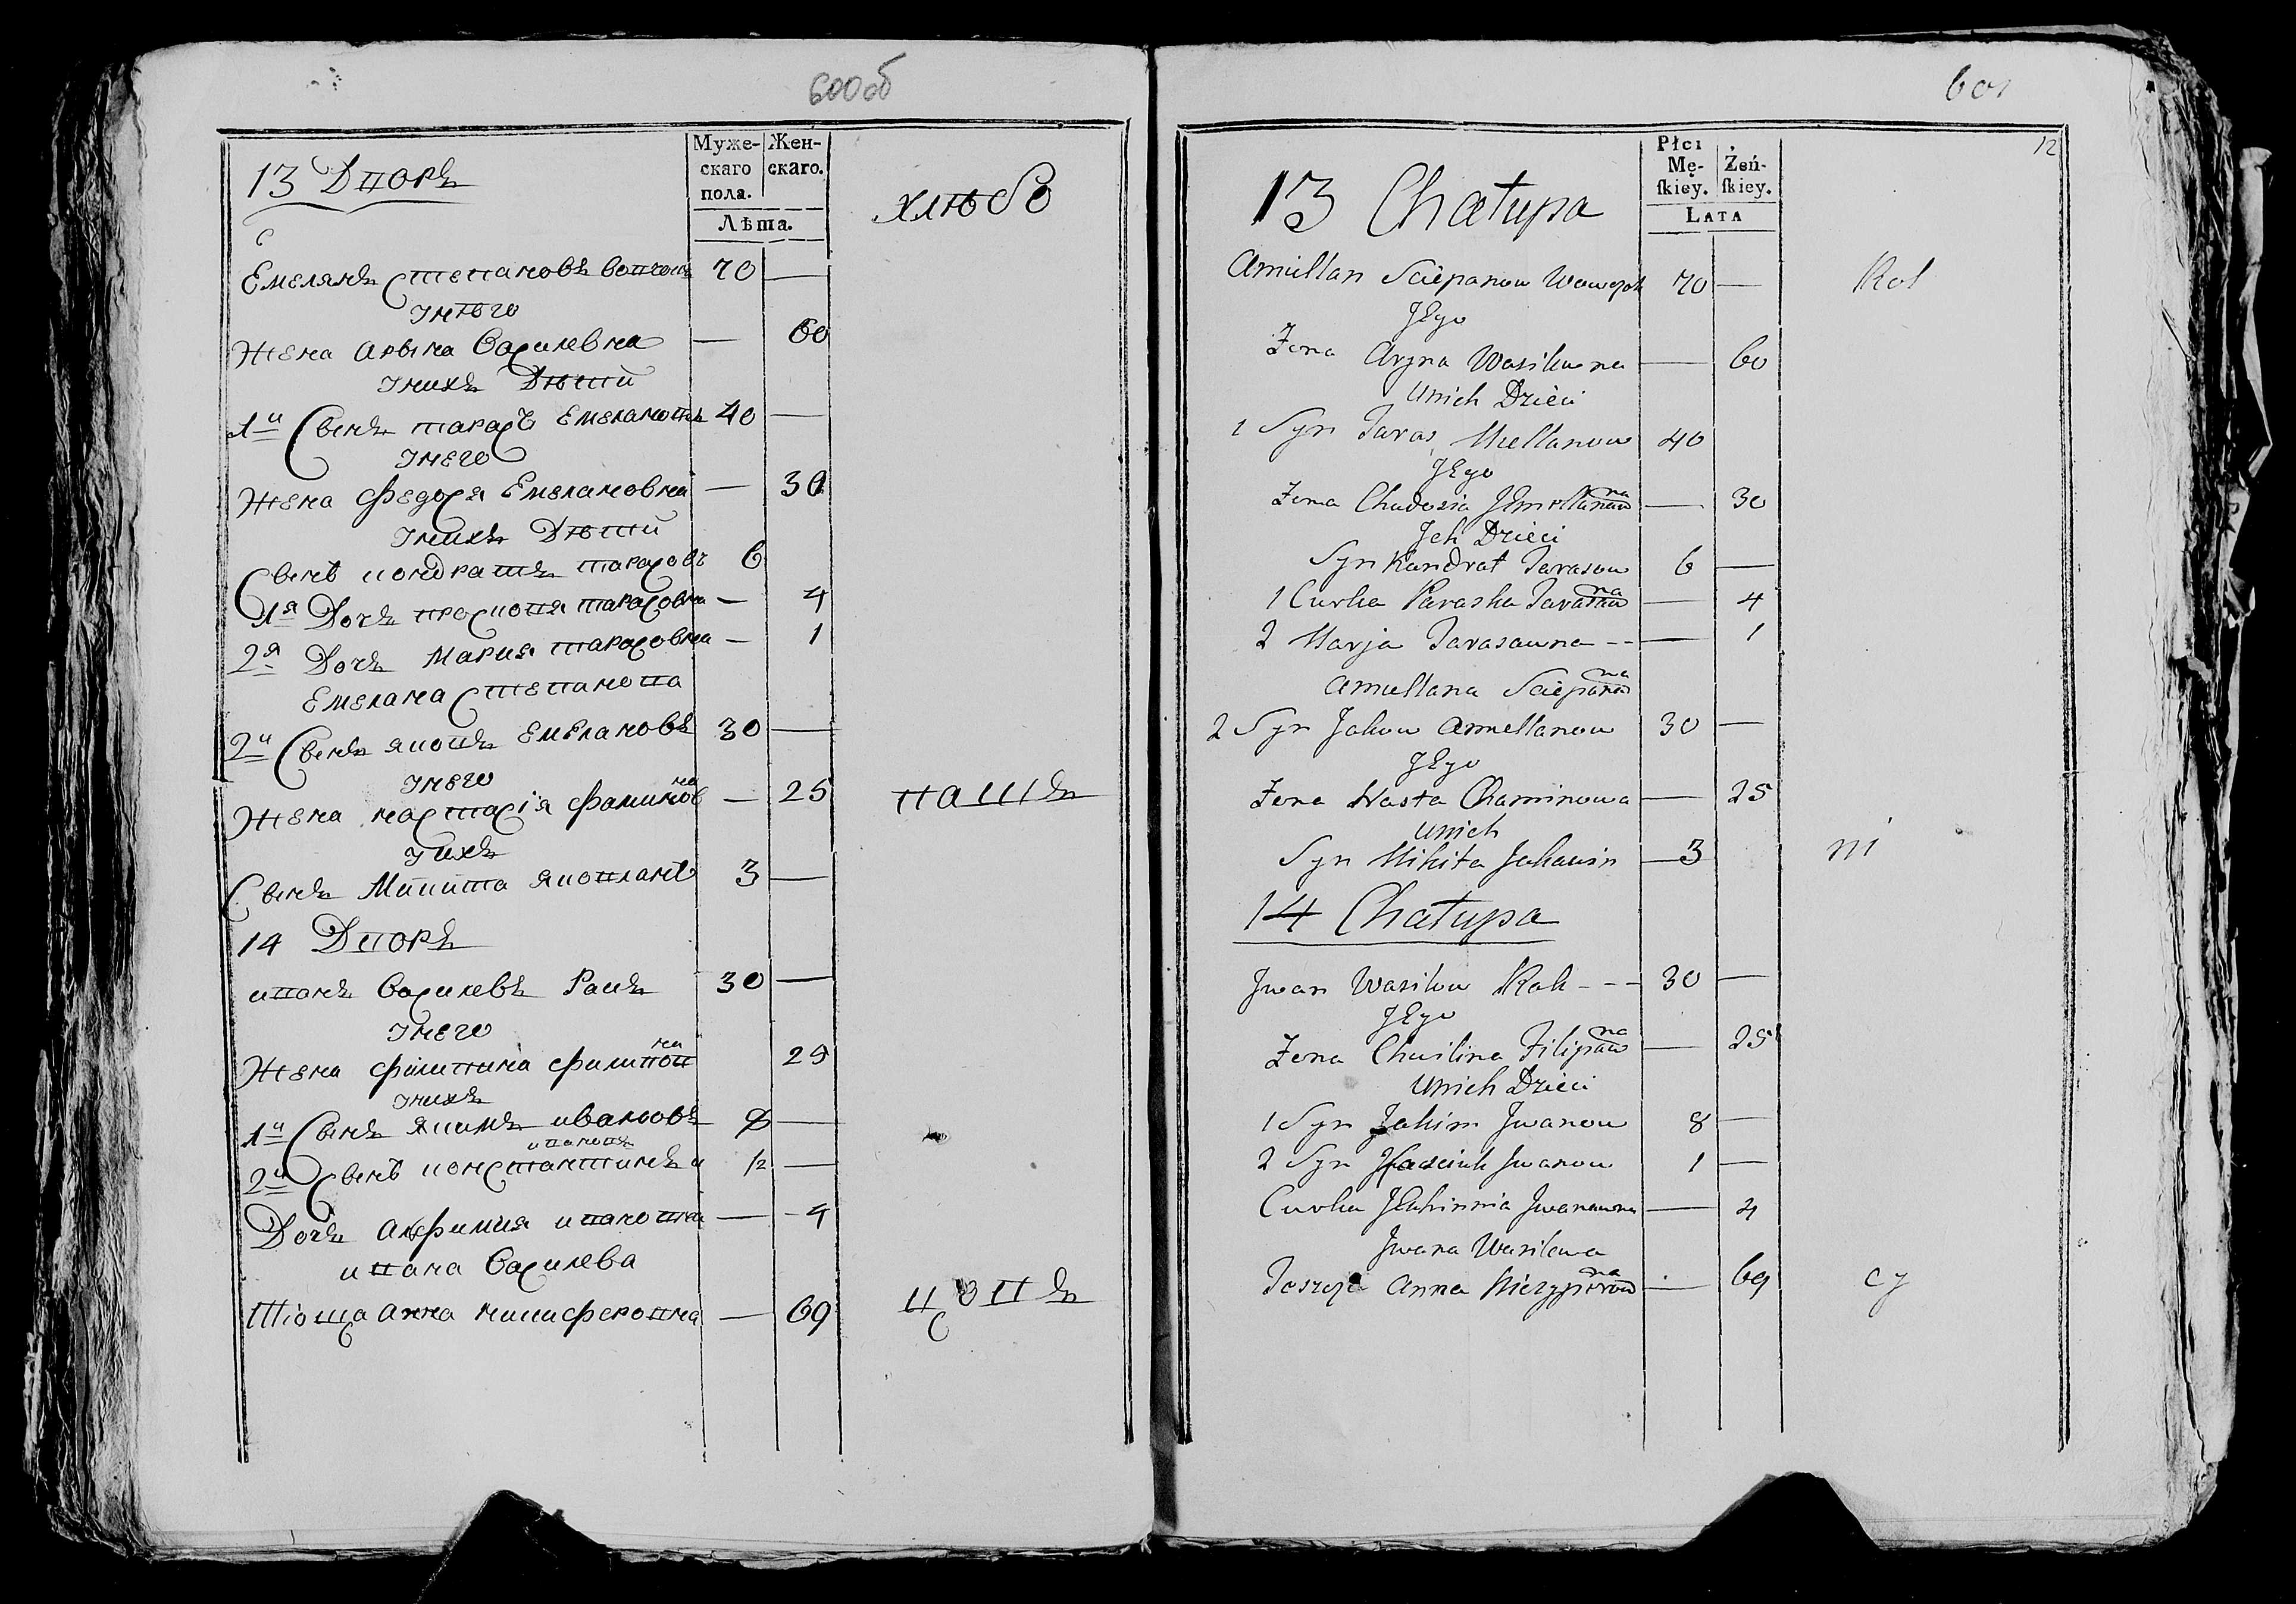 600об
13 Дворъ
Муже-
скаго
пола.
Жен-
скаго.
Лѣта.
хлѣбо
Емелянъ Степановъ 70 —
Унѣго
Жена Арына Василевна — 60
Унихъ Дѣти
1й Сынъ тарасъ Емелановъ 40 —
Унего
Жена Федося Емелановна — 30
Унихъ Дѣти
Сынъ кондратъ тарасовъ 6
1я Дочъ просковя тарасовна — 4
2я Дочъ Мария тарасовна — 1
Емелана Степанова
2й Сынъ яковъ Емелановъ 30 —
Унего
Жена настасія Фаминовна — 25
пашъ
Уихъ
Сынъ Микита 3 —
14 Дворъ
иванъ Василевъ Ракъ 30 —
Унего
Жена филипина филиповна 25
Унихъ
1й Сынъ якимъ ивановъ 8 —
ивановъ
2й Сынъ константинъ 1/2 —
Дочъ Акфимия ивановна — 4
ивана Василева
Тіоща Анна никифоровна — 69
601
12
13 Chałupa
Płci
Mę-
ſkiey.
Żeń-
ſkiey.
Lata
Amillan Sciepanow Wawczok 70 —
Kol
JEgo
Zona Aryna Wasilewna — 60
Unich Dzieci
1 Syn Taras Mellanow 40
JEgo
Zona Chwdosia — 30
Jch Dzieci
Syn Kandrat Tarasow 6 —
1 Curka Paraska Tarasowna — 4
2 Marja Tarasawna — 1
Amellana Sciepanowna
2 Syn Jakow Amellanow 30 —
JEgo
Zona Nasta Chaminowa — 25
Unich
Syn Mikita Jakawin — 3
ni
14 Chałupa
Jwan Wasilew Rak - - - 30 —
JEgo
Zona Chwilina Filipowna — 25
Unich Dzieci
1 Syn Jakim Jwanow 8 —
2 Syn Jwanow 1 —
Curka JEkhimnia Jwanawna — 4
Jwana Wasilewa
Anna — 69
cy